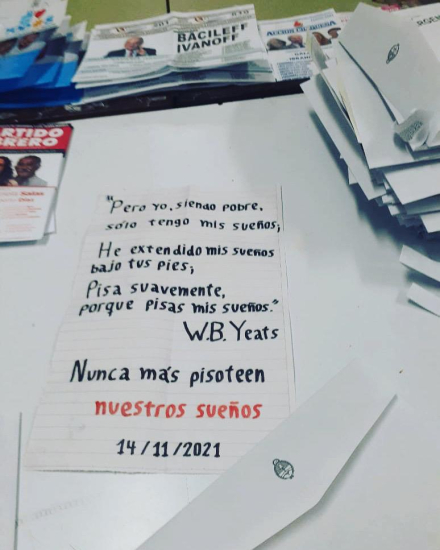 BACILEFF
IVANOFF
ACCIÓN CHAQUEÑA
PARTIDO
OBRERO
"Pero yo, siendo pobre,
sólo tengo mis sueños;
He extendido mis sueños
bajo tus pies;
Pisa suavemente,
porque pisas mis sueños."
W.B. Yeats
Nunca más pisoteen
nuestros sueños
14/11/2021